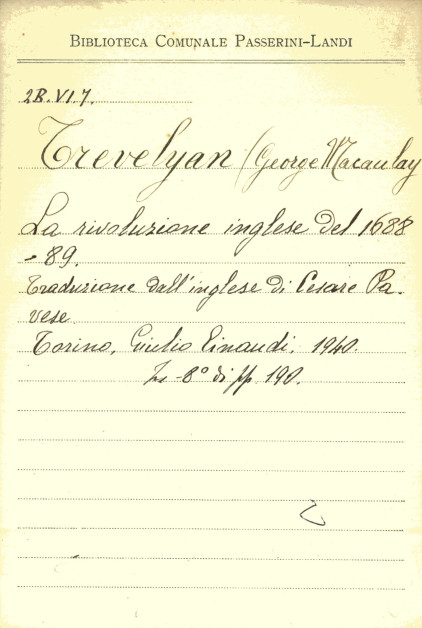 BIBLIOTECA COMUNALE PASSERINI-LANDI
2B.VI.7.
Trevelyan (George Macaulay
La rivoluzione inglese del 1688
-89.
Traduzione dall'inglese di Cesare Pa-
vese
Torino, Giulio Einaudi, 1940.
In-8° di pp. 190.